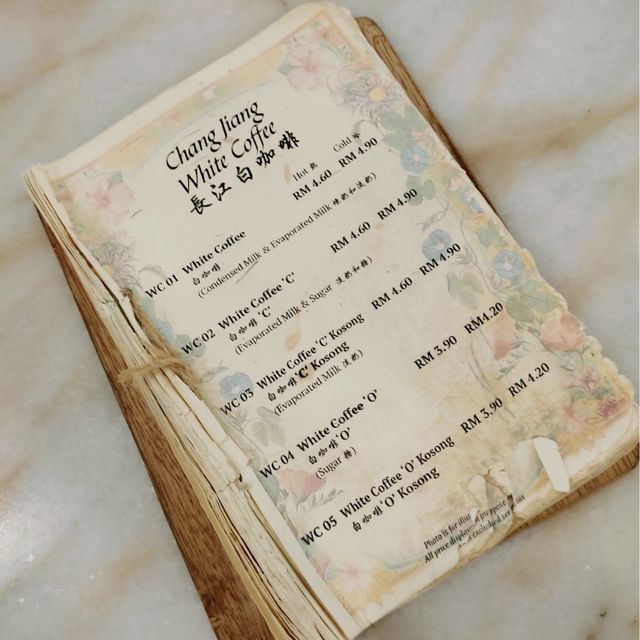 Chang Jiang
White Coffee
長江白咖啡
Hot 熱 Cold
WC 01 White Coffee RM 4.60 RM 4.90
白咖啡
(Condensed Milk & Evaporated Milk 煉奶和淡奶)
WC 02 White Coffee 'C' RM 4.60 RM 4.90
白咖啡 'C'
(Evaporated Milk & Sugar 淡奶和糖)
WC 03 White Coffee 'C' Kosong RM 4.60 RM 4.90
白咖啡 'C' Kosong
(Evaporated Milk 淡奶)
WC 04 White Coffee 'O' RM 3.90 RM4.20
白咖啡 'O'
(Sugar 糖)
WC 05 White Coffee 'O' Kosong RM 3.90 RM 4.20
白咖啡 'O' Kosong
Photo is for purpose
All price excluded